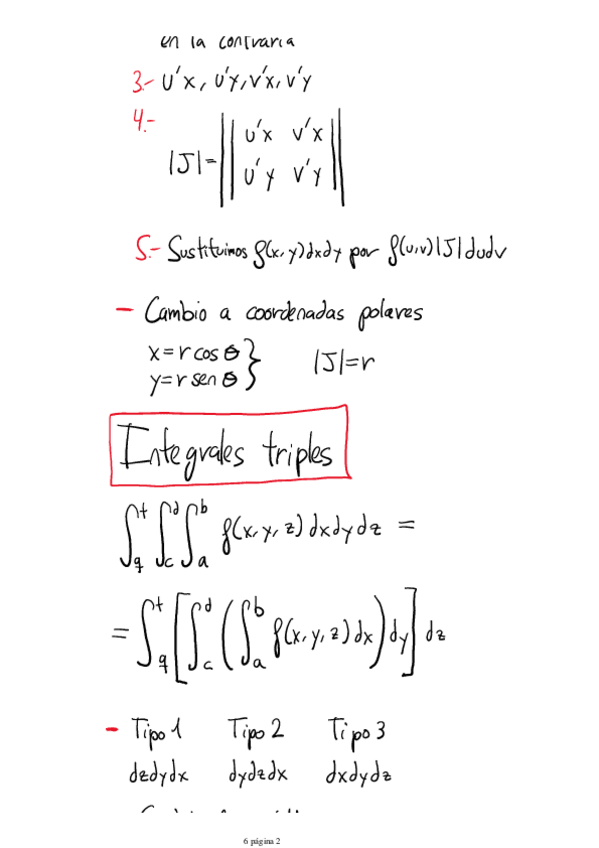 en la contraria
3.- U'x, U'y, V'x, V'y
4.-
|J|= || U'x V'x
U'y V'y ||
5.- Sustituimos f(x,y)dxdy por f(u,v)|J|dudv
- Cambio a coordenadas polares
x=r cos θ } |J|=r
y=r sen θ
Integrales triples
∫_q^t ∫_c^d ∫_a^b f(x,y,z) dxdydz =
= ∫_q^t [∫_c^d (∫_a^b f(x,y,z)dx) dy] dz
- Tipo 1 Tipo 2 Tipo 3
dzdydx dydzdx dxdydz
6 página 2